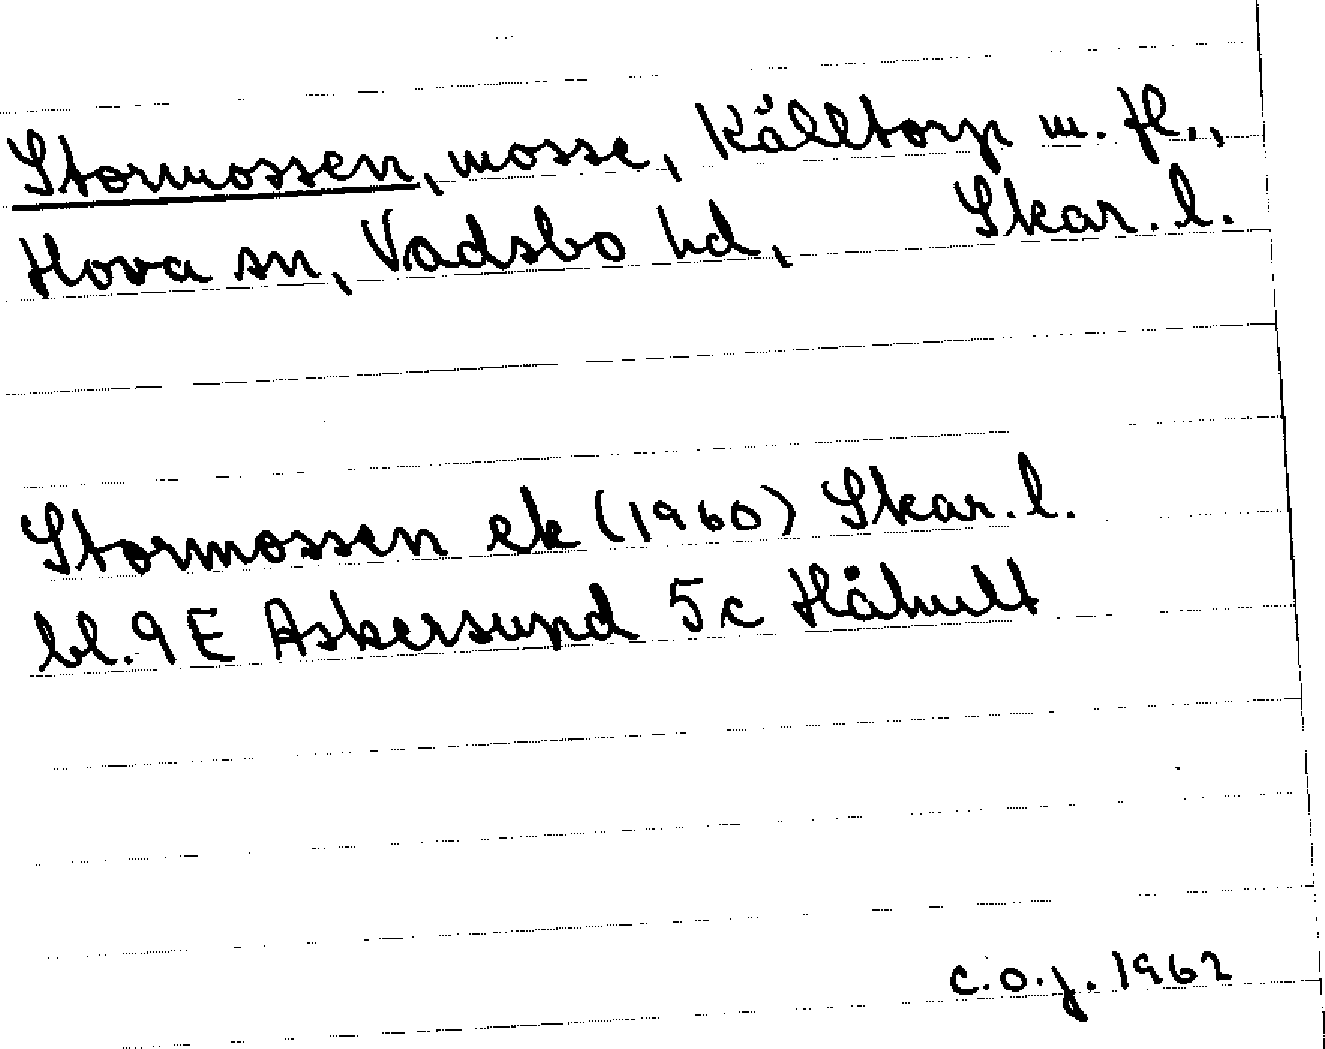 Stormossen, mosse, Källtorp m. fl.,
Hova sn, Vadsbo hd, Skar. l.
Stormossen ek (1960) Skar. l.
bl. 9 E Askersund 5 c Håhult
C. O. J. 1962